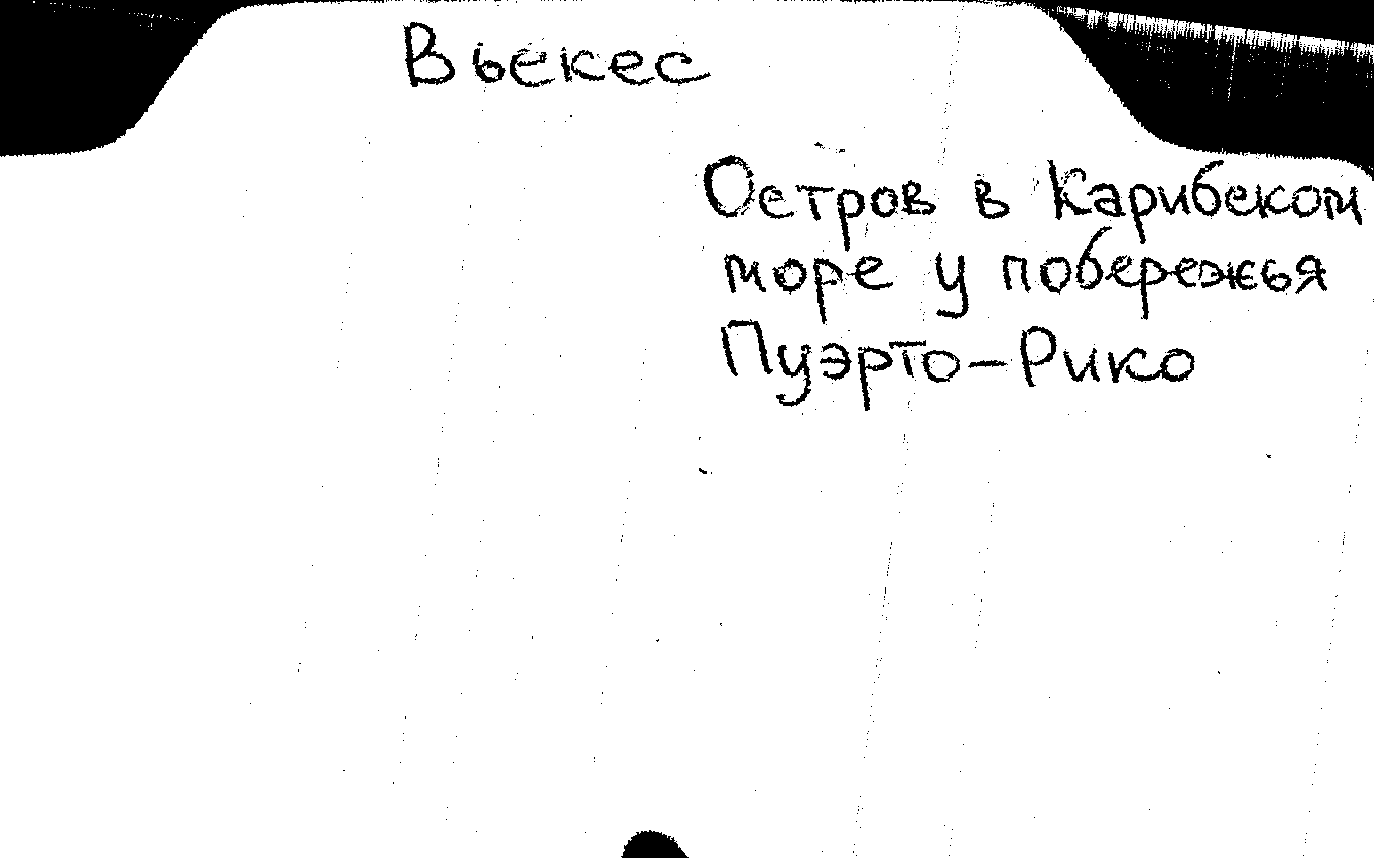 Вьекес
Остров в Карибском
море у побережья
Пуэрто-Рико